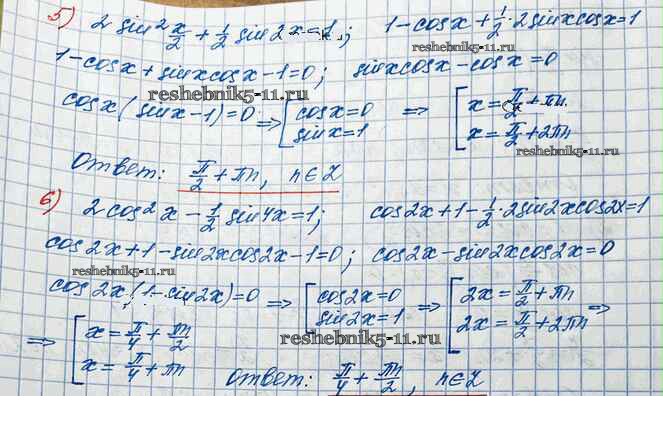 5) 2 sin² x/2 + 1/2 sin 2x = 1; 1 - cosx + 1/2 · 2sinxcosx = 1
reshebnik5-11.ru
1 - cosx + sinxcosx - 1 = 0; sinxcosx - cosx = 0
reshebnik5-11.ru
cosx(sinx - 1) = 0 ⇒ [cosx = 0 sinx = 1 ⇒ [x = π/2 + πn x = π/2 + 2πn
reshebnik5-11.ru
Ответ: π/2 + πn, n∈Z
6) 2cos²x - 1/2 sin4x = 1; cos2x + 1 - 1/2 · 2sin2xcos2x = 1
cos2x + 1 - sin2xcos2x - 1 = 0; cos2x - sin2xcos2x = 0
reshebnik5-11.ru
cos2x(1 - sin2x) = 0 ⇒ [cos2x = 0 sin2x = 1 ⇒ [2x = π/2 + πn 2x = π/2 + 2πn ⇒
reshebnik5-11.ru
⇒ [x = π/4 + πn/2 x = π/4 + πn
Ответ: π/4 + πn/2, n∈Z